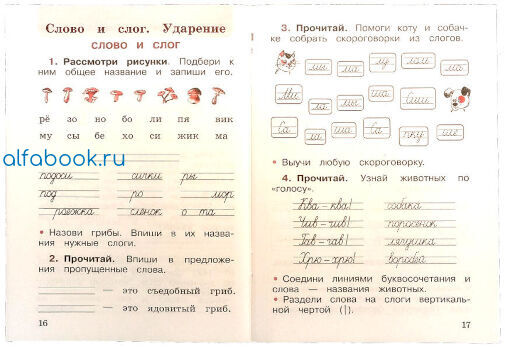 Слово и слог. Ударение
СЛОВО И СЛОГ
1. Рассмотри рисунки. Подбери к
ним общее название и запиши его.
рё зо но бо ли пя вик
му сы бе хо си жик ма
alfabook.ru
подоси сички ры
под ро мор
роежка слёнок о та
• Назови грибы. Впиши в их назва-
ния нужные слоги.
2. Прочитай. Впиши в предложе-
ния пропущенные слова.
— это съедобный гриб.
— это ядовитый гриб.
16
3. Прочитай. Помоги коту и собач-
ке собрать скороговорки из слогов.
• Выучи любую скороговорку.
4. Прочитай. Узнай животных по
«голосу».
Ква – ква! собака
Чив – чив! поросёнок
Гав – гав! лягушка
Хрю – хрю! воробей
• Соедини линиями буквосочетания и
слова — названия животных.
• Раздели слова на слоги вертикаль-
ной чертой (|).
17